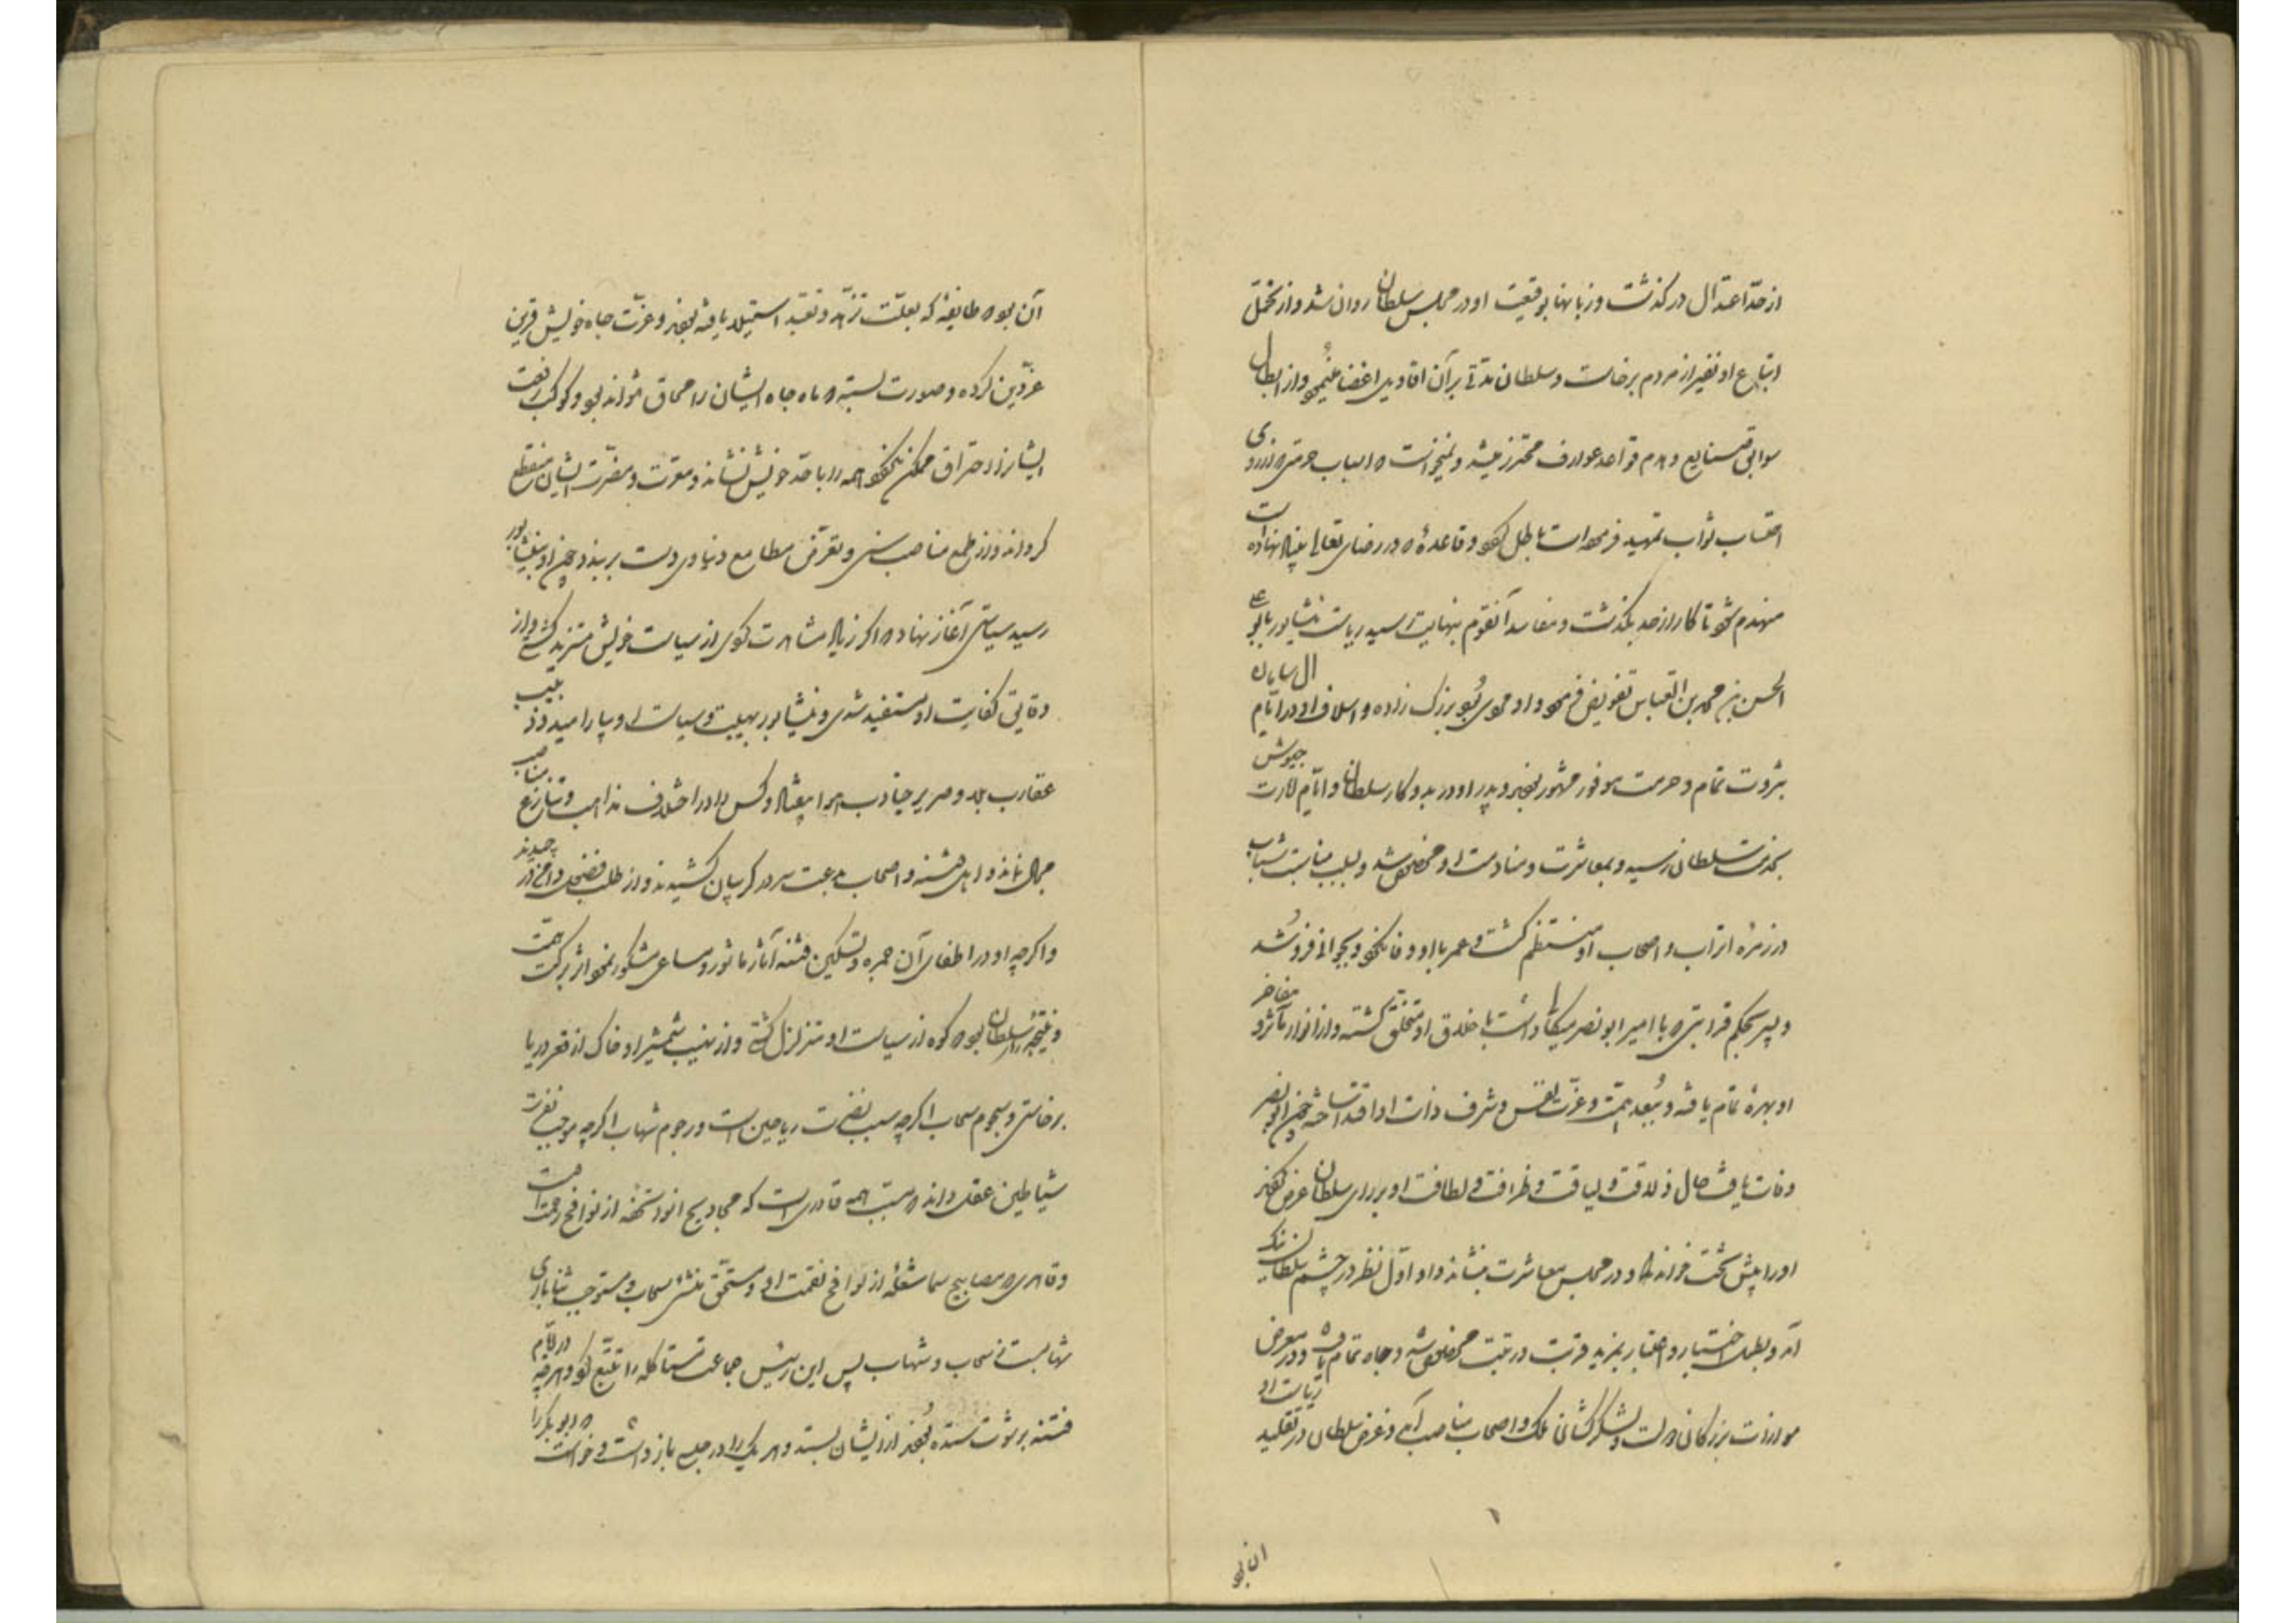 از حدّ اعتدال در گذشت و زبانها بوقیعت او در مجلس سلطان روان شد و از تحمّل
اتباع او نفیر از مردم برخاست و سلطان مدتی بر آن اقاویل اغضا مینمود و از ابطال
سوابق صنایع و هدم قواعد عوارف محترز میشد و نمیخواست که اسباب حرمتی که از روی
احتساب ثواب تمهید فرموده است باطل کند و قاعدۀ که در رضای تعالی بنیاد نهاده است
منهدم شود تا کار از حد بگذشت و مفاسد آنقوم بنهایت رسید ریاست نیشابور بابو علی
الحسن بن محمد بن العباس تفویض فرمود و او مردی بود بزرگ زاده و اسلاف او در ایّام آل سامان
بثروت تمام و حرمت موفور مشهور بودند و پدر او در بدو کار سلطان و ایّام امارت جیوش
بخدمت سلطان رسید و بمعاشرت و منادمت او مخصوص شد و بسبب مناسبت شباب
در زمرۀ اتراب و اصحاب او منتظم گشت و عمر با او وفا نکرد و بجوانی فرو شد
و پسر بحکم قرابتی که با امیر ابو نصر میکال داشت باخلاق او متخلّق گشته و از انوار مآثر و مفاخر
او بهرۀ تمام یافته و ببُعد همّت و عزّت نفس و شرف ذات او اقتدا ساخته چون ابو نصر
وفات یافت حال ذلاقت و لیاقت و ظرافت و لطافت او بر رای سلطان عرض کردند
او را پیش تخت خواند و در مجلس معاشرت بنشاند و او اوّل نظر در چشم سلطان نیک
آمد و بطلب اختیار و اختبار بمزید قربت و رتبت مخصوص شد و جاه تمام یافت و در معرض
موازات بزرگان دولت و لشکرکشان ملک و اصحاب مناصب آمد و غرض سلطان در تقلید ریاست او
آن بود که طایفۀ که بعلّت تزهّد و تعبّد استیلا یافته بودند و عزّت جاه خویش قرین
عزّ دین کرده و صورت بسته که ماه جاه ایشان را محاق نتواند بود و کوکب رفعت
ایشانرا احتراق ممکن نگردد همه را با حد خویش نشاند و معرّت و مضرّت ایشان منقطع
گرداند و از طمع مناصب سنی و تعرّض مطامع دنیاوی دست بربندد چون او بنیشابور
رسید سیاستی آغاز نهاد که اگر زیاد مشاهدت کردی از سیاست خویش متزید گشتی و از
دقایق کفایت او مستفید شدی و نیشابور بهیبت و سیاست او بیارامید و دبیب
عقارب حسد و صریر جنادب اهوا بیفتاد و کس را در اختلاف مذاهب و تنازع مناصب
مجال نماند و اهل فتنه و اصحاب بدعت سر در گریبان کشیدند و از طلب فضول دامن در چیدند
و اگر چه او در اطفای آن جمره و تسکین فتنه آثار ماثور و مساعی مشکور نمود اثر برکت همّت
و نتیجۀ رای سلطان بود که کوه از سیاست او متزلزل گشتی و از نهیب شمشیر او خاک از قعر دریا
برخاستی و سجوم سحاب اگرچه سبب نضرت ریاحین است و رجوم شهاب اگرچه موجب نفرت
شیاطین عقل داند که سبب همه قادری است که مجادیح انوا رشحۀ از نوافح رحمت اوست
و قاهری که مصابیح سما شعلۀ از لوافح نقمت او و مستحقّ منشی سحاب و مستوجب ثنا باری
شهابست نه سحاب و شهاب پس این رئیس جماعت مستاکله را تتبع کرد و هر چه در ایّام
فتنه برشوت ستده بودند از ایشان بستد و هر یک را در حبسی باز داشت و خواست که ابو بکر را